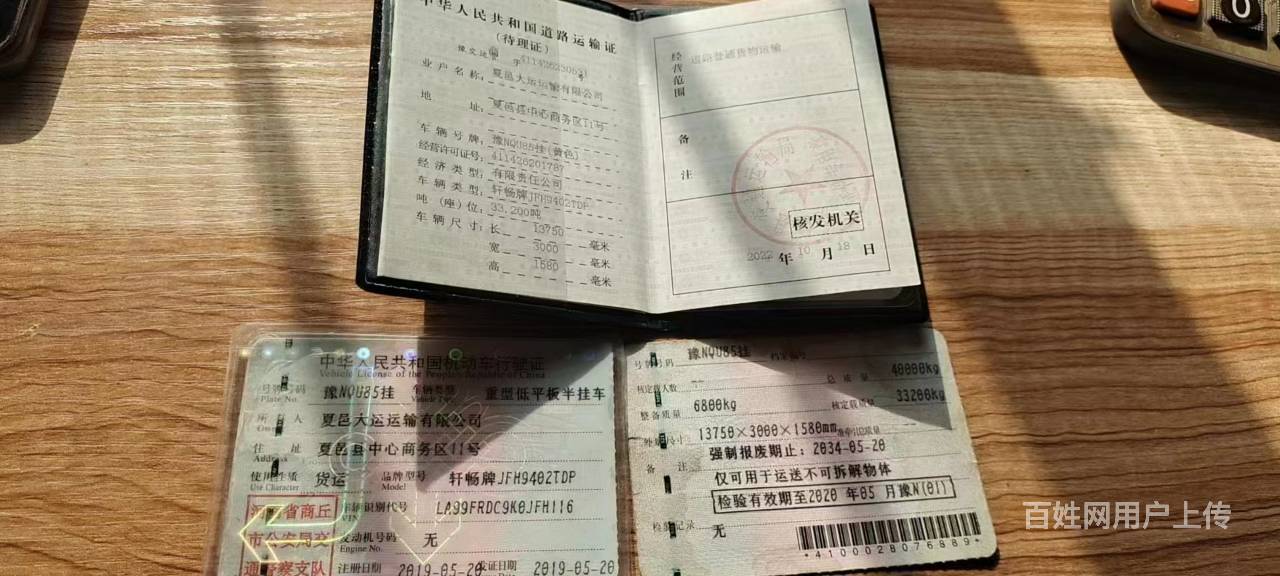 中华人民共和国道路运输证
(待理证)
豫交运管 字 411426230631号
业户名称: 夏邑大运运输有限公司
地 址: 夏邑县中心商务区11号
车辆号牌: 豫NQU85挂(黄色)
经营许可证号: 411426201787
经济类型: 有限责任公司
车辆类型: 轩畅牌JFH9402TDP
吨(座)位: 33.200吨
车辆尺寸: 长 13750 毫米
宽 3000 毫米
高 1580 毫米
经营范围
道路普通货物运输
备注
核发机关
2022 年 10 月 18 日
中华人民共和国机动车行驶证
Vehicle License of the People's Republic of China
号牌号码 豫NQU85挂 车辆类型 重型低平板半挂车
Plate No. Vehicle Type
所有人 夏邑大运运输有限公司
Owner
住址 夏邑县中心商务区11号
Address
使用性质 货运 品牌型号 轩畅牌JFH9402TDP
Use Character Model
河南省商丘
市公安局交
通警察支队
车辆识别代号 LA99FRDC9K0JFH116
VIN
发动机号码 无
Engine No.
注册日期 2019-05-20 发证日期 2019-05-20
号牌号码 豫NQU85挂 档案编号
核定载人数 -- 总质量 40000kg
整备质量 6800kg 核定载质量 33200kg
外廓尺寸 13750×3000×1580mm 准牵引总质量
备注 强制报废期止: 2034-05-20
仅可用于运送不可拆解物体
检验有效期至2020 年05 月豫N(01)
检验记录 无
*4100028076889*
百姓网用户上传
0